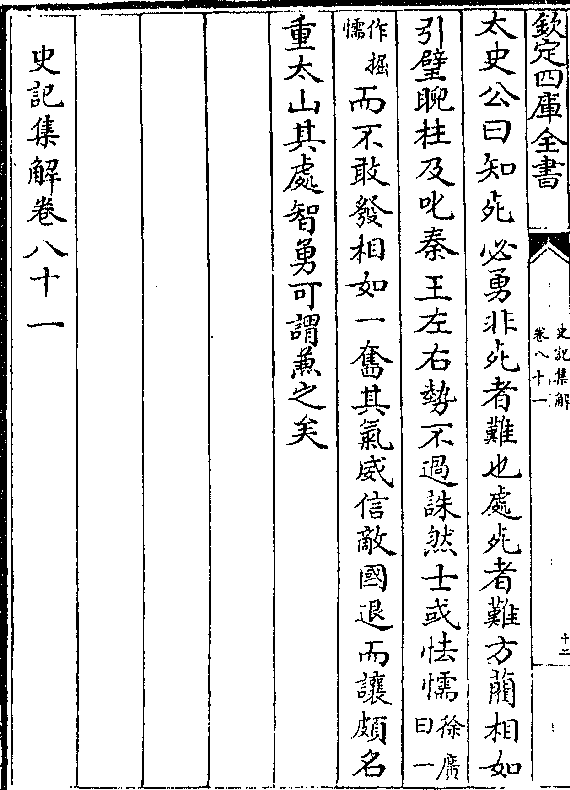 欽定四庫全書
史記集解
卷八十一
十二
太史公曰知死必勇非死者難也處死者難方藺相如
引璧睨柱及叱秦王左右勢不過誅然士或怯懦徐廣曰一
作掘懦而不敢發相如一奮其氣威信敵國退而讓頗名
重太山其處智勇可謂兼之矣
史記集解卷八十一